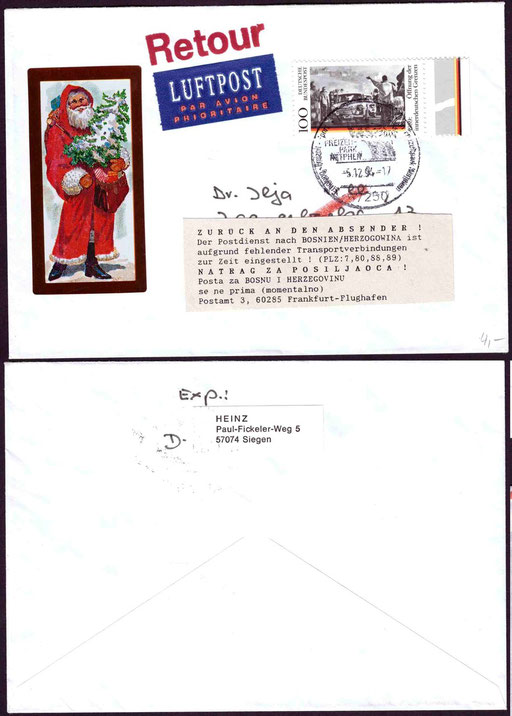 Retour
LUFTPOST
PAR AVION
PRIORITAIRE
DEUTSCHE
BUNDESPOST
100
Öffnung der
innerdeutschen Grenzen
FREIZEIT-
PARK
NETPHEN
-5.12.94-17
Dr. Ilja
ZURÜCK AN DEN ABSENDER !
Der Postdienst nach BOSNIEN/HERZOGOWINA ist
aufgrund fehlender Transportverbindungen
zur Zeit eingestellt ! (PLZ:7,80,88,89)
NATRAG ZA POSILJAOCA !
Posta za BOSNU I HERZEGOVINU
se ne prima (momentalno)
Postamt 3, 60285 Frankfurt-Flughafen
4,-
Exp.:
HEINZ
Paul-Fickeler-Weg 5
D- 57074 Siegen